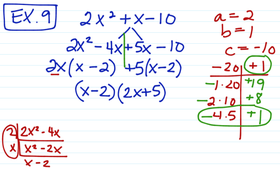 EX. 9
2x² + x - 10
2x² - 4x + 5x - 10
2x(x - 2) + 5(x - 2)
(x - 2)(2x + 5)
a = 2
b = 1
c = -10
-20 | +1
-1·20 | +19
-2·10 | +8
-4·5 | +1
2 | 2x² - 4x
x | x² - 2x
x - 2